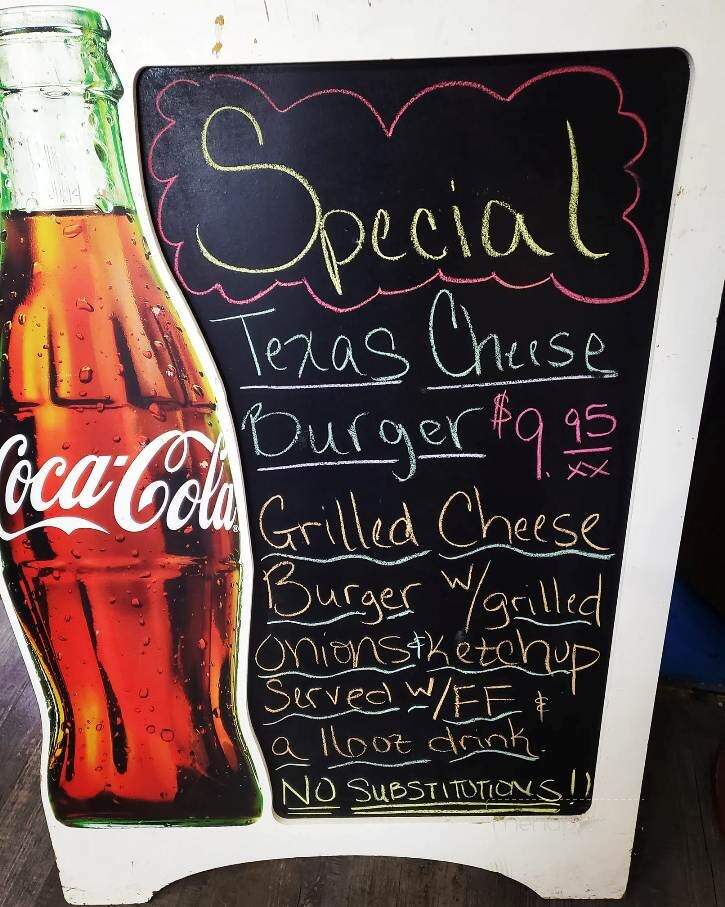 Special
Texas Cheese
Burger $9.95
xx
Grilled Cheese
Burger w/grilled
onions & Ketchup
Served w/FF &
a 16oz drink.
NO SUBSTITUTIONS!!
Coca-Cola